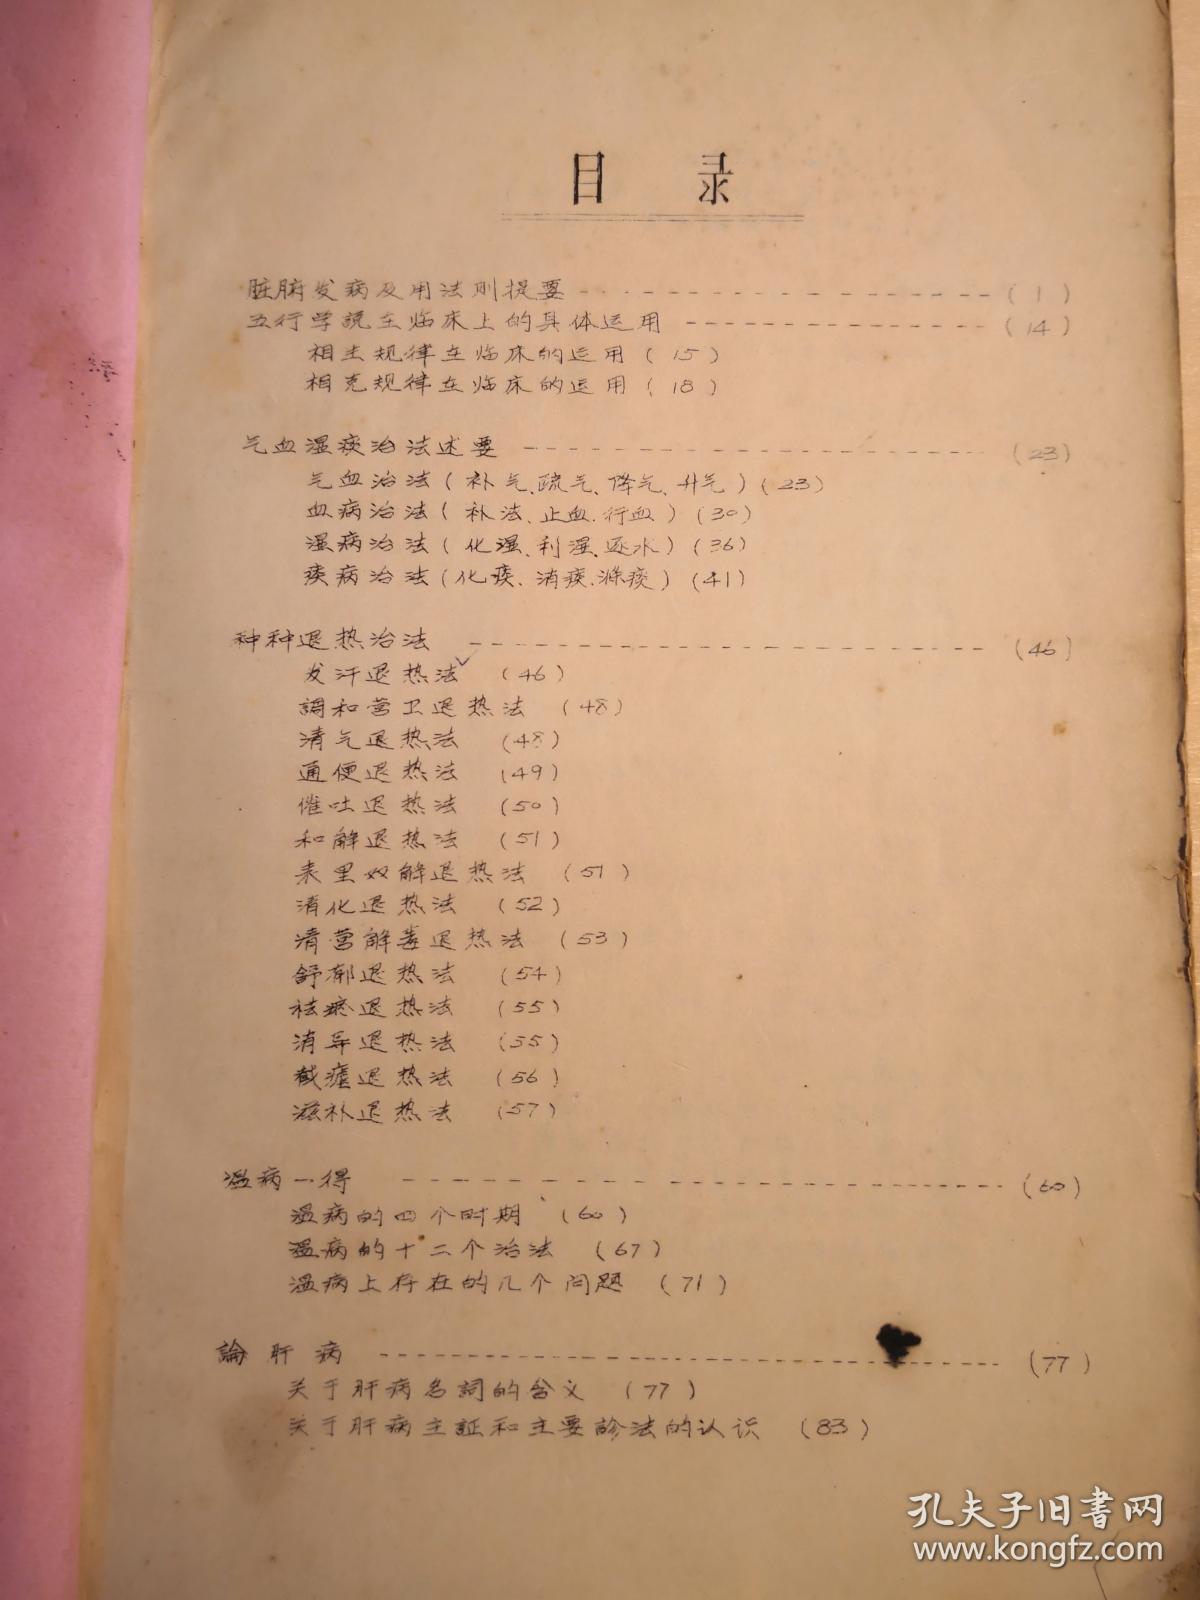 目 录
脏腑发病及用法则提要 (1)
五行学説在临床上的具体运用 (14)
相生规律在临床的运用 (15)
相克规律在临床的运用 (18)
气血湿痰治法述要 (23)
气血治法(补气、疏气、降气、升气)(23)
血病治法(补法、止血、行血)(30)
湿病治法(化湿、利湿、逐水)(36)
痰病治法(化痰、消痰、滌痰)(41)
种种退热治法 (46)
发汗退热法 (46)
調和营卫退热法 (48)
清气退热法 (48)
通便退热法 (49)
催吐退热法 (50)
和解退热法 (51)
表里双解退热法 (51)
清化退热法 (52)
清营解毒退热法 (53)
舒郁退热法 (54)
祛瘀退热法 (55)
消导退热法 (55)
截瘧退热法 (56)
滋补退热法 (57)
温病一得 (60)
温病的四个时期 (60)
温病的十二个治法 (67)
温病上存在的几个问题 (71)
論肝病 (77)
关于肝病名詞的含义 (77)
关于肝病主証和主要診法的认识 (83)
孔夫子旧书网
www.kongfz.com